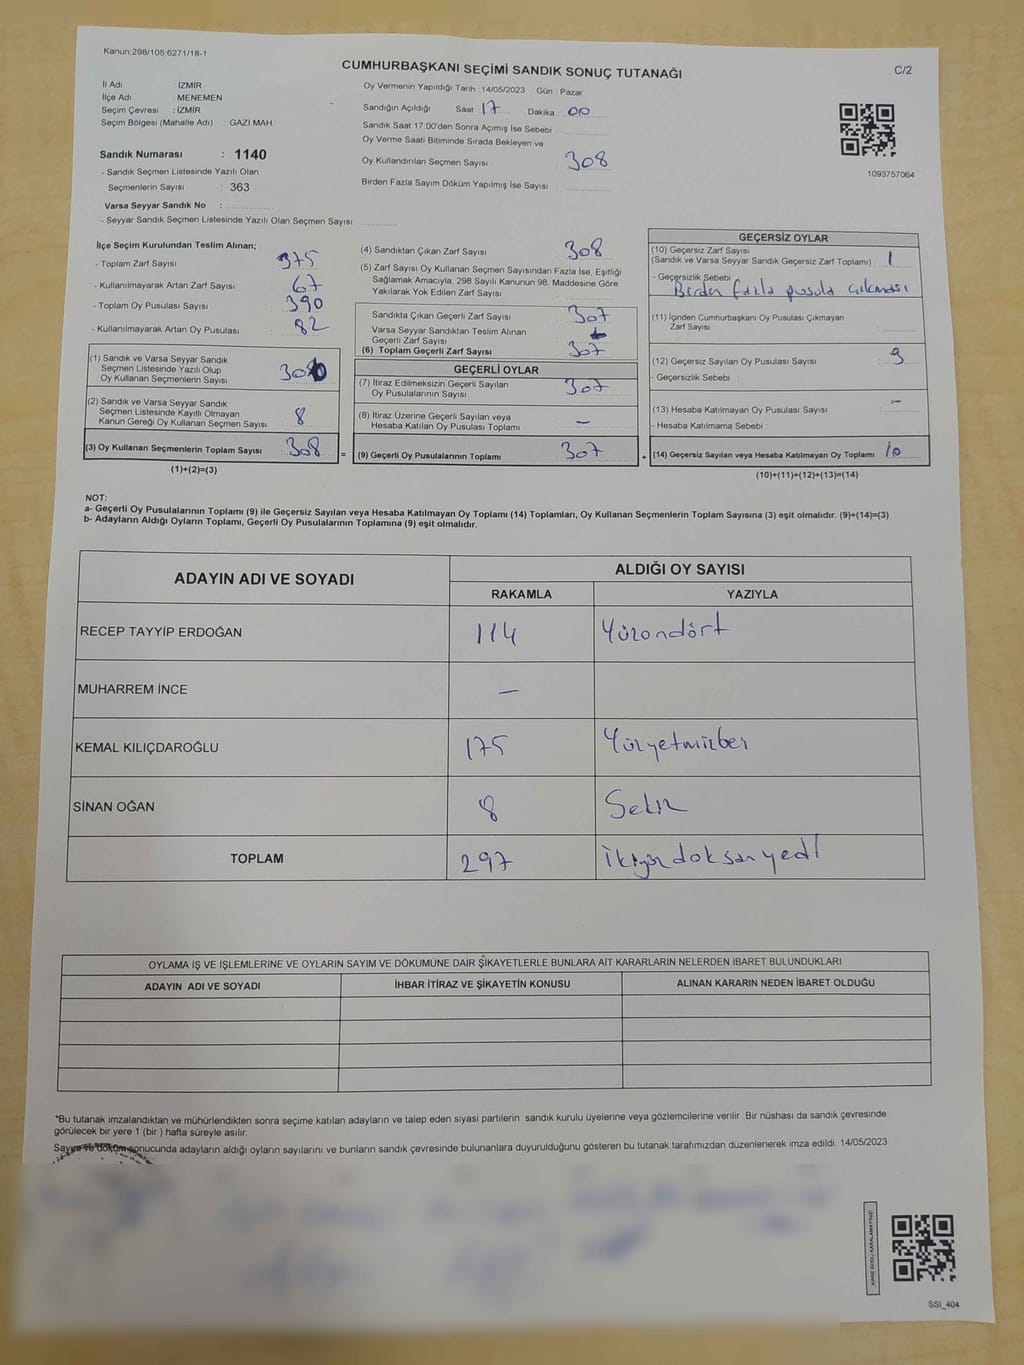 Kanun;298/105;6271/18-1
CUMHURBAŞKANI SEÇİMİ SANDIK SONUÇ TUTANAĞI
C/2
İl Adı : İZMİR
İlçe Adı : MENEMEN
Seçim Çevresi : İZMİR
Seçim Bölgesi (Mahalle Adı) : GAZİ MAH.
Sandık Numarası : 1140
- Sandık Seçmen Listesinde Yazılı Olan
Seçmenlerin Sayısı : 363
Varsa Seyyar Sandık No :
- Seyyar Sandık Seçmen Listesinde Yazılı Olan Seçmen Sayısı:
Oy Vermenin Yapıldığı Tarih : 14/05/2023 Gün : Pazar
Sandığın Açıldığı Saat : 17 Dakika : 00
Sandık Saat 17:00'den Sonra Açımış İse Sebebi :
Oy Verme Saati Bitiminde Sırada Bekleyen ve
Oy Kullandırılan Seçmen Sayısı : 308
Birden Fazla Sayım Döküm Yapılmış İse Sayısı :
1093757064
İlçe Seçim Kurulundan Teslim Alınan;
- Toplam Zarf Sayısı : 375
- Kullanılmayarak Artan Zarf Sayısı : 67
- Toplam Oy Pusulası Sayısı : 390
- Kullanılmayarak Artan Oy Pusulası : 82
(1) Sandık ve Varsa Seyyar Sandık
Seçmen Listesinde Yazılı Olup
Oy Kullanan Seçmenlerin Sayısı
(2) Sandık ve Varsa Seyyar Sandık
Seçmen Listesinde Kayıtlı Olmayan
Kanun Gereği Oy Kullanan Seçmen Sayısı : 8
(3) Oy Kullanan Seçmenlerin Toplam Sayısı : 308
(1)+(2)=(3)
(4) Sandıktan Çıkan Zarf Sayısı : 308
(5) Zarf Sayısı Oy Kullanan Seçmen Sayısından Fazla İse, Eşitliği
Sağlamak Amacıyla, 298 Sayılı Kanunun 98. Maddesine Göre
Yakılarak Yok Edilen Zarf Sayısı :
Sandıkta Çıkan Geçerli Zarf Sayısı : 307
Varsa Seyyar Sandıktan Teslim Alınan
Geçerli Zarf Sayısı :
(6) Toplam Geçerli Zarf Sayısı : 307
GEÇERLİ OYLAR
(7) İtiraz Edilmeksizin Geçerli Sayılan
Oy Pusulalarının Sayısı : 307
(8) İtiraz Üzerine Geçerli Sayılan veya
Hesaba Katılan Oy Pusulası Toplamı : –
= (9) Geçerli Oy Pusulalarının Toplamı : 307
GEÇERSİZ OYLAR
(10) Geçersiz Zarf Sayısı
(Sandık ve Varsa Seyyar Sandık Geçersiz Zarf Toplamı) : 1
- Geçersizlik Sebebi :
Birden fazla pusula çıkması
(11) İçinden Cumhurbaşkanı Oy Pusulası Çıkmayan
Zarf Sayısı :
(12) Geçersiz Sayılan Oy Pusulası Sayısı : 9
- Geçersizlik Sebebi :
(13) Hesaba Katılmayan Oy Pusulası Sayısı : –
- Hesaba Katılmama Sebebi :
+ (14) Geçersiz Sayılan veya Hesaba Katılmayan Oy Toplamı : 10
(10)+(11)+(12)+(13)=(14)
NOT:
a- Geçerli Oy Pusulalarının Toplamı (9) ile Geçersiz Sayılan veya Hesaba Katılmayan Oy Toplamı (14) Toplamları, Oy Kullanan Seçmenlerin Toplam Sayısına (3) eşit olmalıdır. (9)+(14)=(3)
b- Adayların Aldığı Oyların Toplamı, Geçerli Oy Pusulalarının Toplamına (9) eşit olmalıdır.
ADAYIN ADI VE SOYADI ALDIĞI OY SAYISI
RAKAMLA YAZIYLA
RECEP TAYYİP ERDOĞAN 114 Yüzondört
MUHARREM İNCE –
KEMAL KILIÇDAROĞLU 175 Yüzyetmizbeş
SİNAN OĞAN 8 Sekiz
TOPLAM 297 İkiyüzdoksanyedi
OYLAMA İŞ VE İŞLEMLERİNE VE OYLARIN SAYIM VE DÖKÜMÜNE DAİR ŞİKAYETLERLE BUNLARA AİT KARARLARIN NELERDEN İBARET BULUNDUKLARI
ADAYIN ADI VE SOYADI İHBAR İTİRAZ VE ŞİKAYETİN KONUSU ALINAN KARARIN NEDEN İBARET OLDUĞU
*Bu tutanak imzalandıktan ve mühürlendikten sonra seçime katılan adayların ve talep eden siyasi partilerin sandık kurulu üyelerine veya gözlemcilerine verilir. Bir nüshası da sandık çevresinde
görülecek bir yere 1 (bir ) hafta süreyle asılır.
Sayım ve döküm sonucunda adayların aldığı oyların sayılarını ve bunların sandık çevresinde bulunanlara duyurulduğunu gösteren bu tutanak tarafımızdan düzenlenerek imza edildi. 14/05/2023
KARE KODU KARALAMAYINIZ!
SSI_404